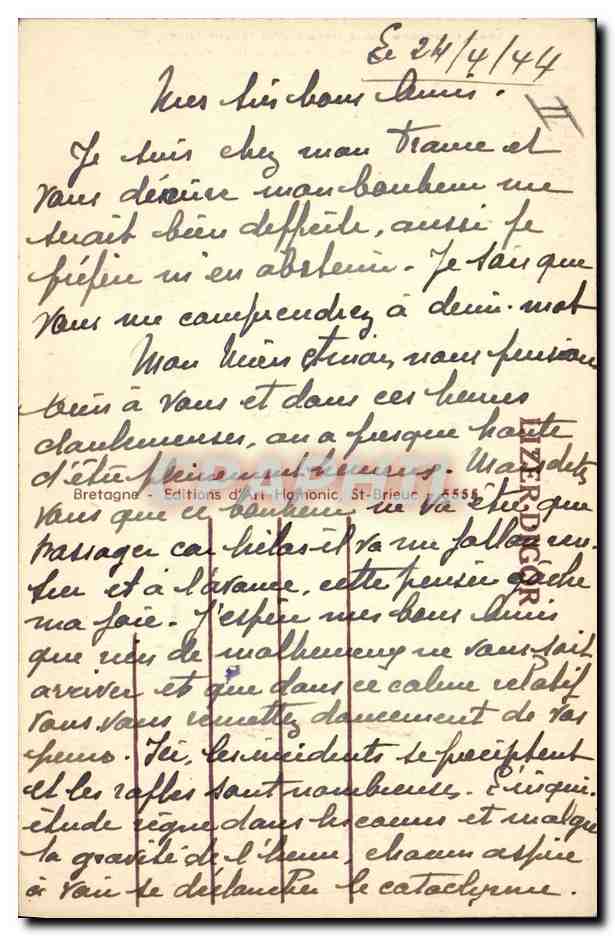 Le 24/4/44
II
Mes très bons Amis.
Je suis chez mon France et
vous décrire mon bonheur me
serait bien difficile, aussi je
préfère m'en abstenir. Je sais que
vous me comprendrez à demi-mot
Mon nous pensons
bien à vous et dans ces heures
douloureuses, on a presque honte
d'être pleinement heureux. Mais dites
Bretagne - Editions d'Art Hamonic, St-Brieuc - 5558
LIZER-DIGOR
vous que ce bonheur ne va être que
passager car hélas il va me falloir ren-
trer et à l'avance, cette pensée gâche
ma joie. J'espère mes bons Amis
que rien de malheureux ne vous soit
arriver et que dans ce calme relatif
vous vous remettez doucement de vos
peines. Ici, les incidents se précipitent
et les rafles sont nombreuses. L'inqui-
étude règne dans les cœurs et malgré
la gravité de l'heure, chacun aspire
à voir se déclancher le cataclysme.